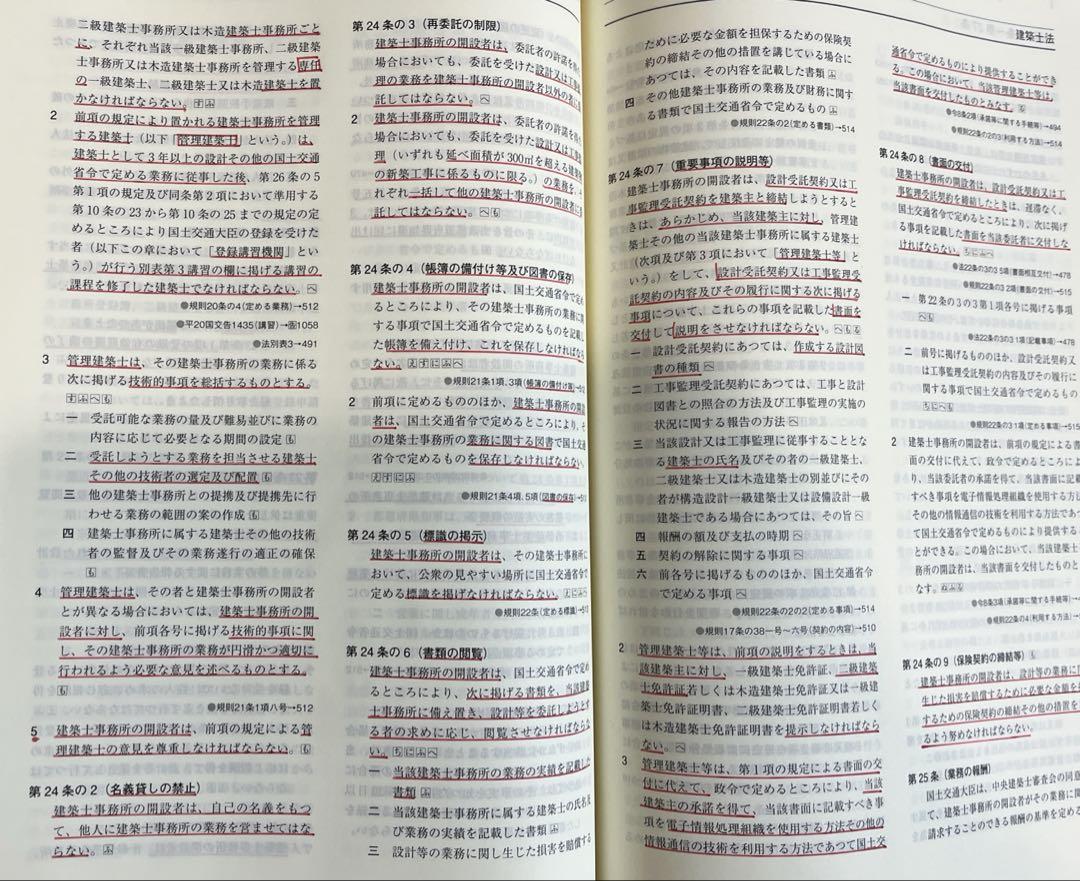 二級建築士事務所又は木造建築士事務所ごと
に、それぞれ当該一級建築士事務所、二級建築
士事務所又は木造建築士事務所を管理する専任
の一級建築士、二級建築士又は木造建築士を置
かなければならない。
2 前項の規定により置かれる建築士事務所を管理
する建築士（以下「管理建築士」という。）は、
建築士として3年以上の設計その他の国土交通
省令で定める業務に従事した後、第26条の5
第1項の規定及び同条第2項において準用する
第10条の23から第10条の25までの規定の定
めるところにより国土交通大臣の登録を受けた
者（以下この章において「登録講習機関」とい
う。）が行う別表第3講習の欄に掲げる講習の
課程を修了した建築士でなければならない。へ
●規則20条の4（定める業務）→512
●平20国交告1435（講習）→告1058
●法別表3→491
3 管理建築士は、その建築士事務所の業務に係る
次に掲げる技術的事項を総括するものとする。
すふへも
一 受託可能な業務の量及び難易並びに業務の
内容に応じて必要となる期間の設定も
二 受託しようとする業務を担当させる建築士
その他の技術者の選定及び配置も
三 他の建築士事務所との提携及び提携先に行
わせる業務の範囲の案の作成も
四 建築士事務所に属する建築士その他の技術
者の監督及びその業務遂行の適正の確保
も
4 管理建築士は、その者と建築士事務所の開設者
とが異なる場合においては、建築士事務所の開
設者に対し、前項各号に掲げる技術的事項に関
し、その建築士事務所の業務が円滑かつ適切に
行われるよう必要な意見を述べるものとする。
も
●規則21条1項八号→512
5 建築士事務所の開設者は、前項の規定による管
理建築士の意見を尊重しなければならない。も
第24条の2（名義貸しの禁止）
建築士事務所の開設者は、自己の名義をもつ
て、他人に建築士事務所の業務を営ませてはな
らない。ふ
第24条の3（再委託の制限）
建築士事務所の開設者は、委託者の許諾を得た
場合においても、委託を受けた設計又は工事
理の業務を建築士事務所の開設者以外の者に
託してはならない。へ
2 建築士事務所の開設者は、委託者の許諾を得
場合においても、委託を受けた設計又は工事
理（いずれも延べ面積が300㎡を超える建築
の新築工事に係るものに限る。）の業務を、
れぞれ一括して他の建築士事務所の開設者に
託してはならない。へも
第24条の4（帳簿の備付け等及び図書の保存）
建築士事務所の開設者は、国土交通省令で定め
るところにより、その建築士事務所の業務に関
する事項で国土交通省令で定めるものを記載し
た帳簿を備え付け、これを保存しなければなら
ない。えすにふへ
●規則21条1項、3項（帳簿の備付け等）
2 前項に定めるもののほか、建築士事務所の開設
者は、国土交通省令で定めるところにより、そ
の建築士事務所の業務に関する図書で国土交通
省令で定めるものを保存しなければならない。
えにふ
●規則21条4項、5項（図書の保存）
第24条の5（標識の掲示）
建築士事務所の開設者は、その建築士事務所に
おいて、公衆の見やすい場所に国土交通省令で
定める標識を掲げなければならない。えにふへ
●規則22条（定める標識）
第24条の6（書類の閲覧）
建築士事務所の開設者は、国土交通省令で定め
るところにより、次に掲げる書類を、当該建築
士事務所に備え置き、設計等を委託しようとす
る者の求めに応じ、閲覧させなければならな
い。ちにふへ
一 当該建築士事務所の業務の実績を記載した
書類ふ
二 当該建築士事務所に属する建築士の氏名及
び業務の実績を記載した書類ふ
三 設計等の業務に関し生じた損害を賠償する
建築士法
ために必要な金額を担保するための保険契
約の締結その他の措置を講じている場合に
あつては、その内容を記載した書類ふ
四 その他建築士事務所の業務及び財務に関す
る書類で国土交通省令で定めるものふ
●規則22条の2（定める書類）→514
第24条の7（重要事項の説明等）
建築士事務所の開設者は、設計受託契約又は工
事監理受託契約を建築主と締結しようとすると
きは、あらかじめ、当該建築主に対し、管理建
築士その他の当該建築士事務所に属する建築士
（次項及び第3項において「管理建築士等」と
いう。）をして、設計受託契約又は工事監理受
託契約の内容及びその履行に関する次に掲げる
事項について、これらの事項を記載した書面を
交付して説明をさせなければならない。へもも
一 設計受託契約にあつては、作成する設計図
書の種類へ
二 工事監理受託契約にあつては、工事と設計
図書との照合の方法及び工事監理の実施の
状況に関する報告の方法へ
三 当該設計又は工事監理に従事することとな
る建築士の氏名及びその者の一級建築士、
二級建築士又は木造建築士の別並びにその
者が構造設計一級建築士又は設備設計一級
建築士である場合にあつては、その旨へ
四 報酬の額及び支払の時期へ
五 契約の解除に関する事項へ
六 前各号に掲げるもののほか、国土交通省令
で定める事項へ
●規則22条の2の2（定める事項）→514
●規則17条の38一号～六号（契約の内容）→510
2 管理建築士等は、前項の説明をするときは、当
該建築主に対し、一級建築士免許証、二級建築
士免許証若しくは木造建築士免許証又は一級建
築士免許証明書、二級建築士免許証明書若しく
は木造建築士免許証明書を提示しなければなら
ない。へ
3 管理建築士等は、第1項の規定による書面の交
付に代えて、政令で定めるところにより、当該
建築主の承諾を得て、当該書面に記載すべき事
項を電子情報処理組織を使用する方法その他の
情報通信の技術を利用する方法であつて国土交
通省令で定めるものにより提供することができ
る。この場合において、当該管理建築士等は、
当該書面を交付したものとみなす。も
●令8条2項（承諾等に関する手続等）→494
●規則22条の2の3（利用する方法）→514
第24条の8（書面の交付）
建築士事務所の開設者は、設計受託契約又は工
事監理受託契約を締結したときは、遅滞なく、
国土交通省令で定めるところにより、次に掲げ
る事項を記載した書面を当該委託者に交付しな
ければならない。ちにふへ
●法22条の3の3 5項（書面相互交付）→478
●規則22条の3（書面の交付）→515
一 第22条の3の3第1項各号に掲げる事項
へも
●法22条の3の3 1項（記載事項）→478
二 前号に掲げるもののほか、設計受託契約又
は工事監理受託契約の内容及びその履行に
関する事項で国土交通省令で定めるもの
ちにへも
●規則22条の3 1項（定める事項）→515
2 建築士事務所の開設者は、前項の規定による書
面の交付に代えて、政令で定めるところによ
り、当該委託者の承諾を得て、当該書面に記載
すべき事項を電子情報処理組織を使用する方法
その他の情報通信の技術を利用する方法であつ
て国土交通省令で定めるものにより提供するこ
とができる。この場合において、当該建築士
務所の開設者は、当該書面を交付したものと
なす。ねふも
●令8条3項（承諾等に関する手続等）
●規則22条の4（利用する方法）
第24条の9（保険契約の締結等）も
建築士事務所の開設者は、設計等の業務に
生じた損害を賠償するために必要な金額を
するための保険契約の締結その他の措置を
るよう努めなければならない。
第25条（業務の報酬）
国土交通大臣は、中央建築士審査会の同意
て、建築士事務所の開設者がその業務に関
請求することのできる報酬の基準を定める